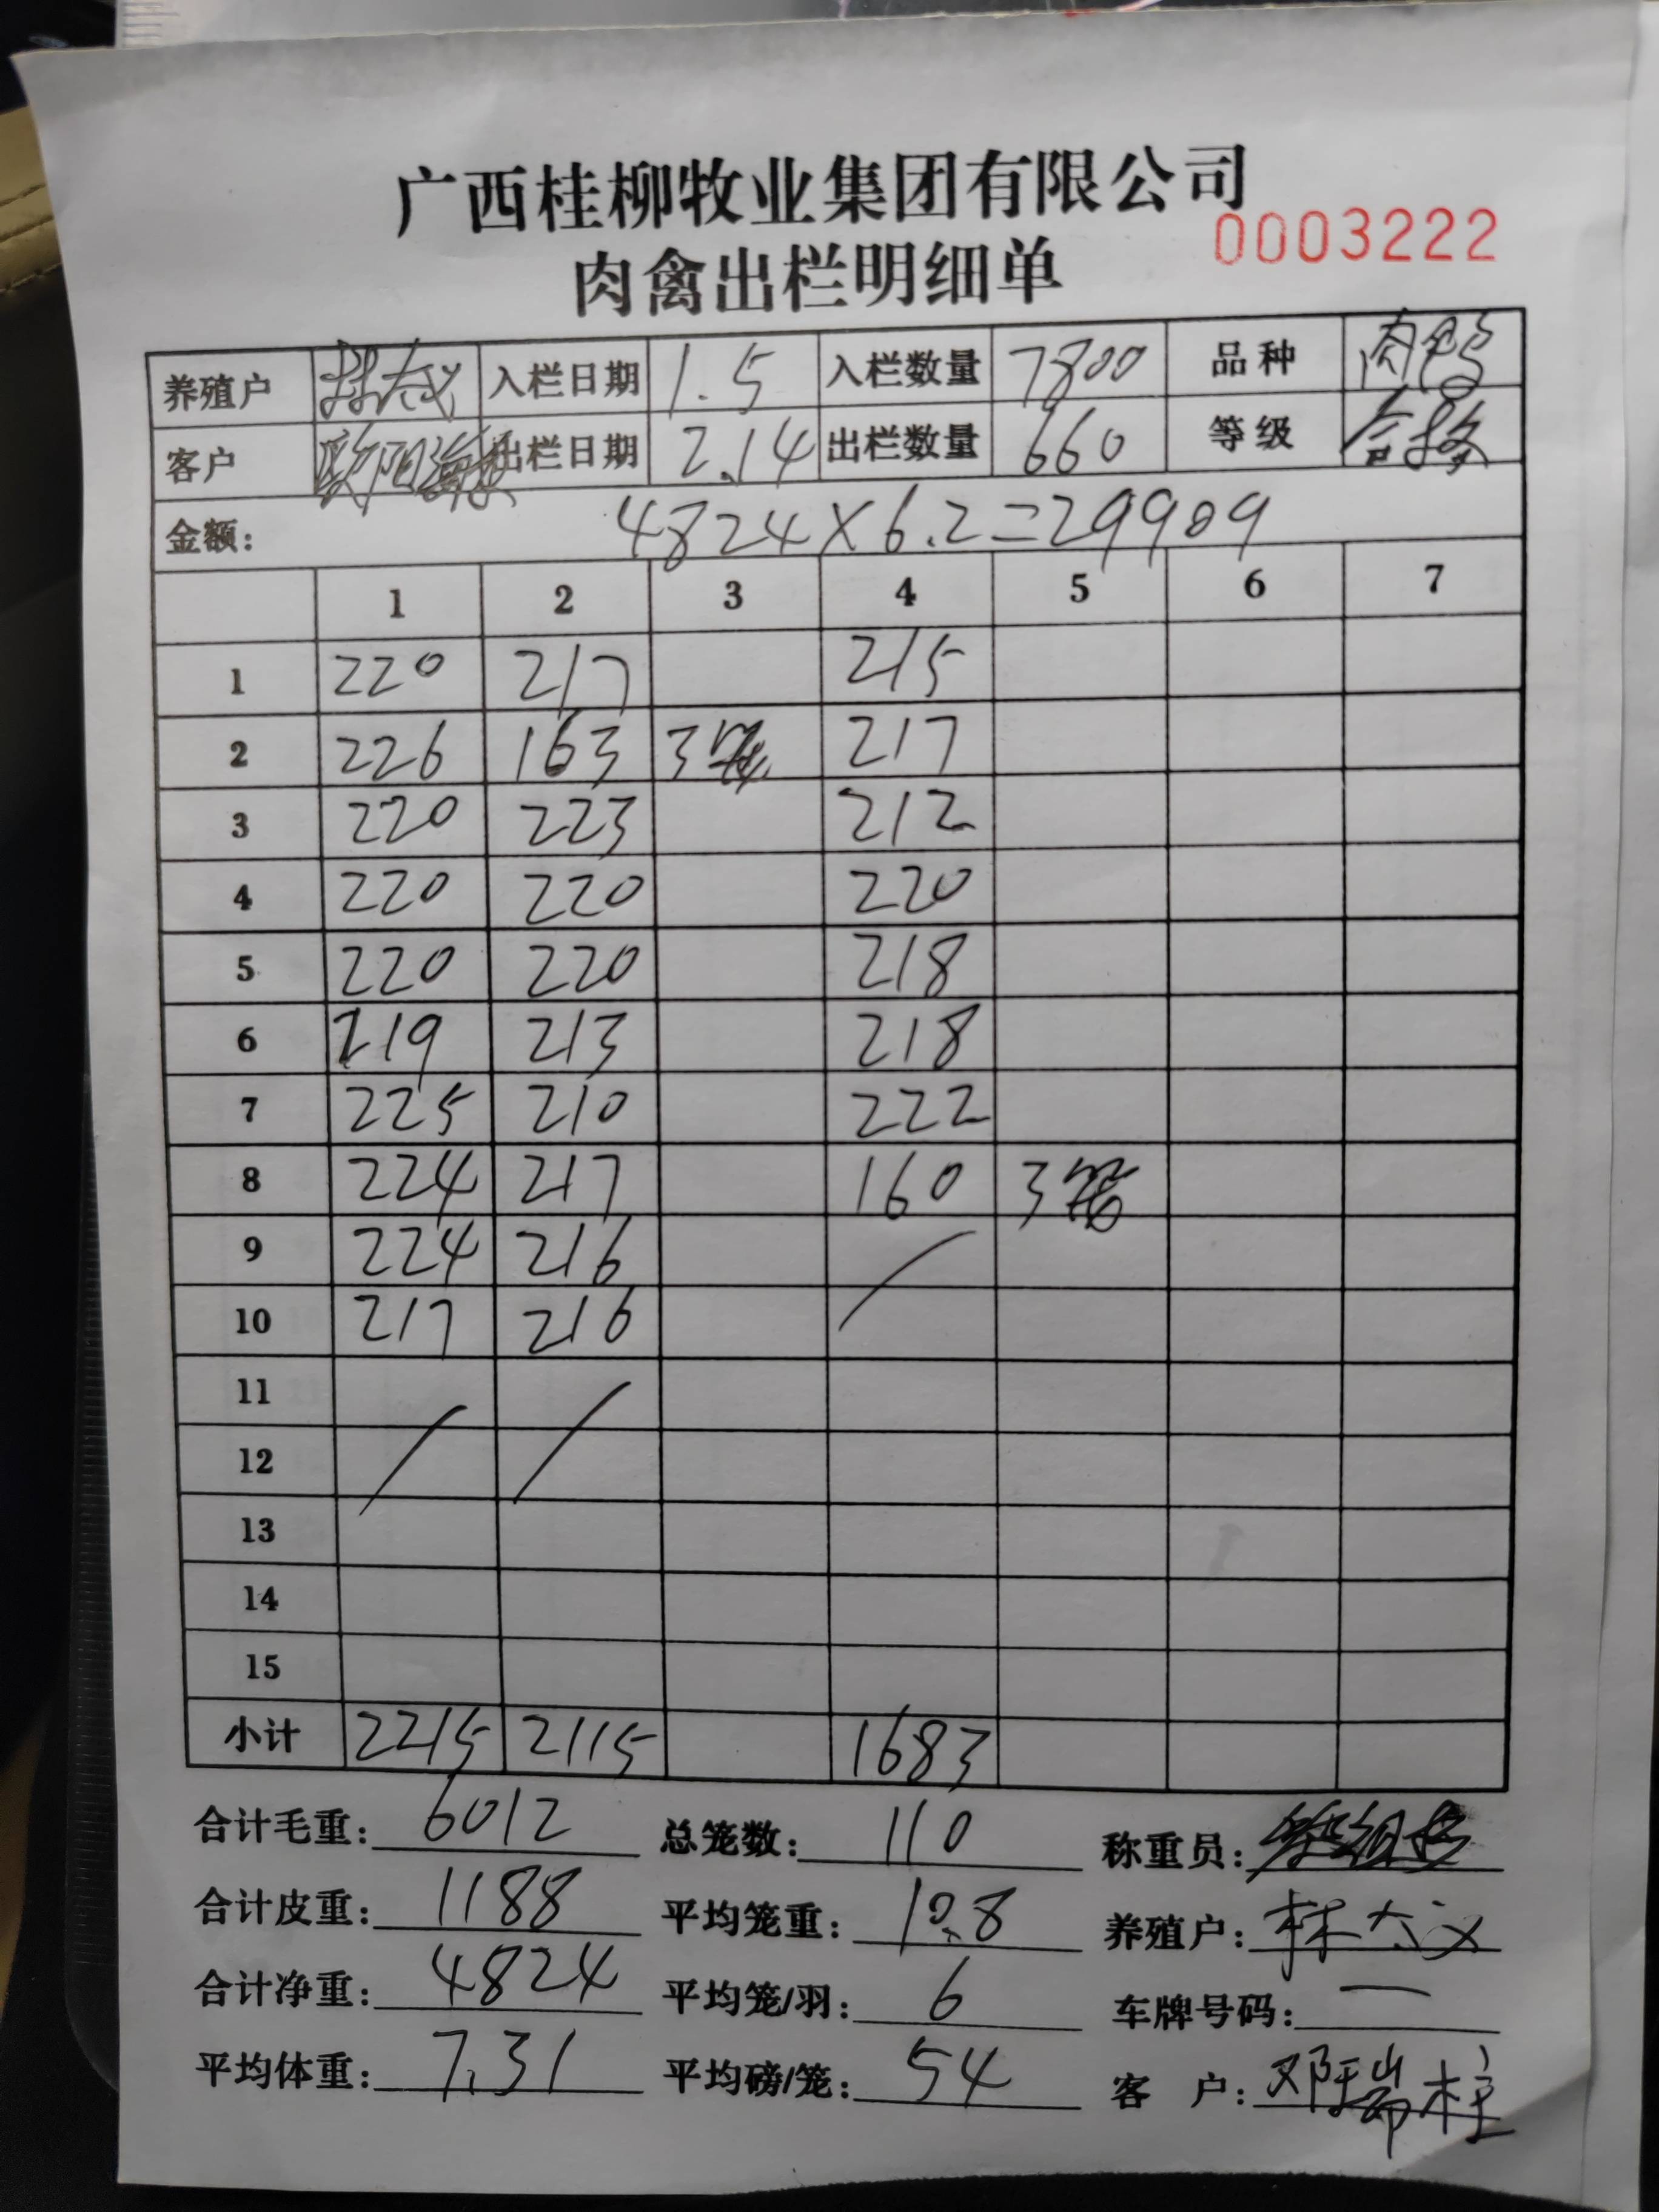 广西桂柳牧业集团有限公司
0003222
肉禽出栏明细单
养殖户 入栏日期 1.5 入栏数量 7800 品种 肉鸭
客户 欧阳海 出栏日期 2.14 出栏数量 660 等级 合格
金额: 4824×6.2=29909
1 2 3 4 5 6 7
1 220 217 215
2 226 163 3笼 217
3 220 223 212
4 220 220 220
5 220 220 218
6 219 213 218
7 225 210 222
8 224 217 160 3笼
9 224 216
10 217 216
11
12
13
14
15
小计 2215 2115 1683
合计毛重: 6012 总笼数: 110 称重员:
合计皮重: 1188 平均笼重: 10.8 养殖户: 林大义
合计净重: 4824 平均笼/羽: 6 车牌号码: 一
平均体重: 7.31 平均磅/笼: 54 客户: 邓瑞柱